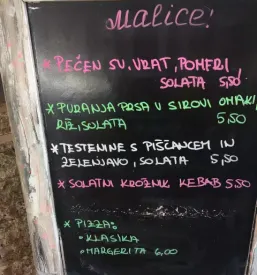 Malice!
* PEČEN SV. VRAT, POMFRI,
SOLATA 5,50
* PURANJA PRSA V SIROVI OMAKI,
RIŽ, SOLATA 5,50
* TESTENINE S PIŠČANCEM IN
ZELENJAVO, SOLATA 5,50
* SOLATNI KROŽNIK KEBAB 5,50
* PIZZA:
• KLASIKA
• MARGERITA 6,00